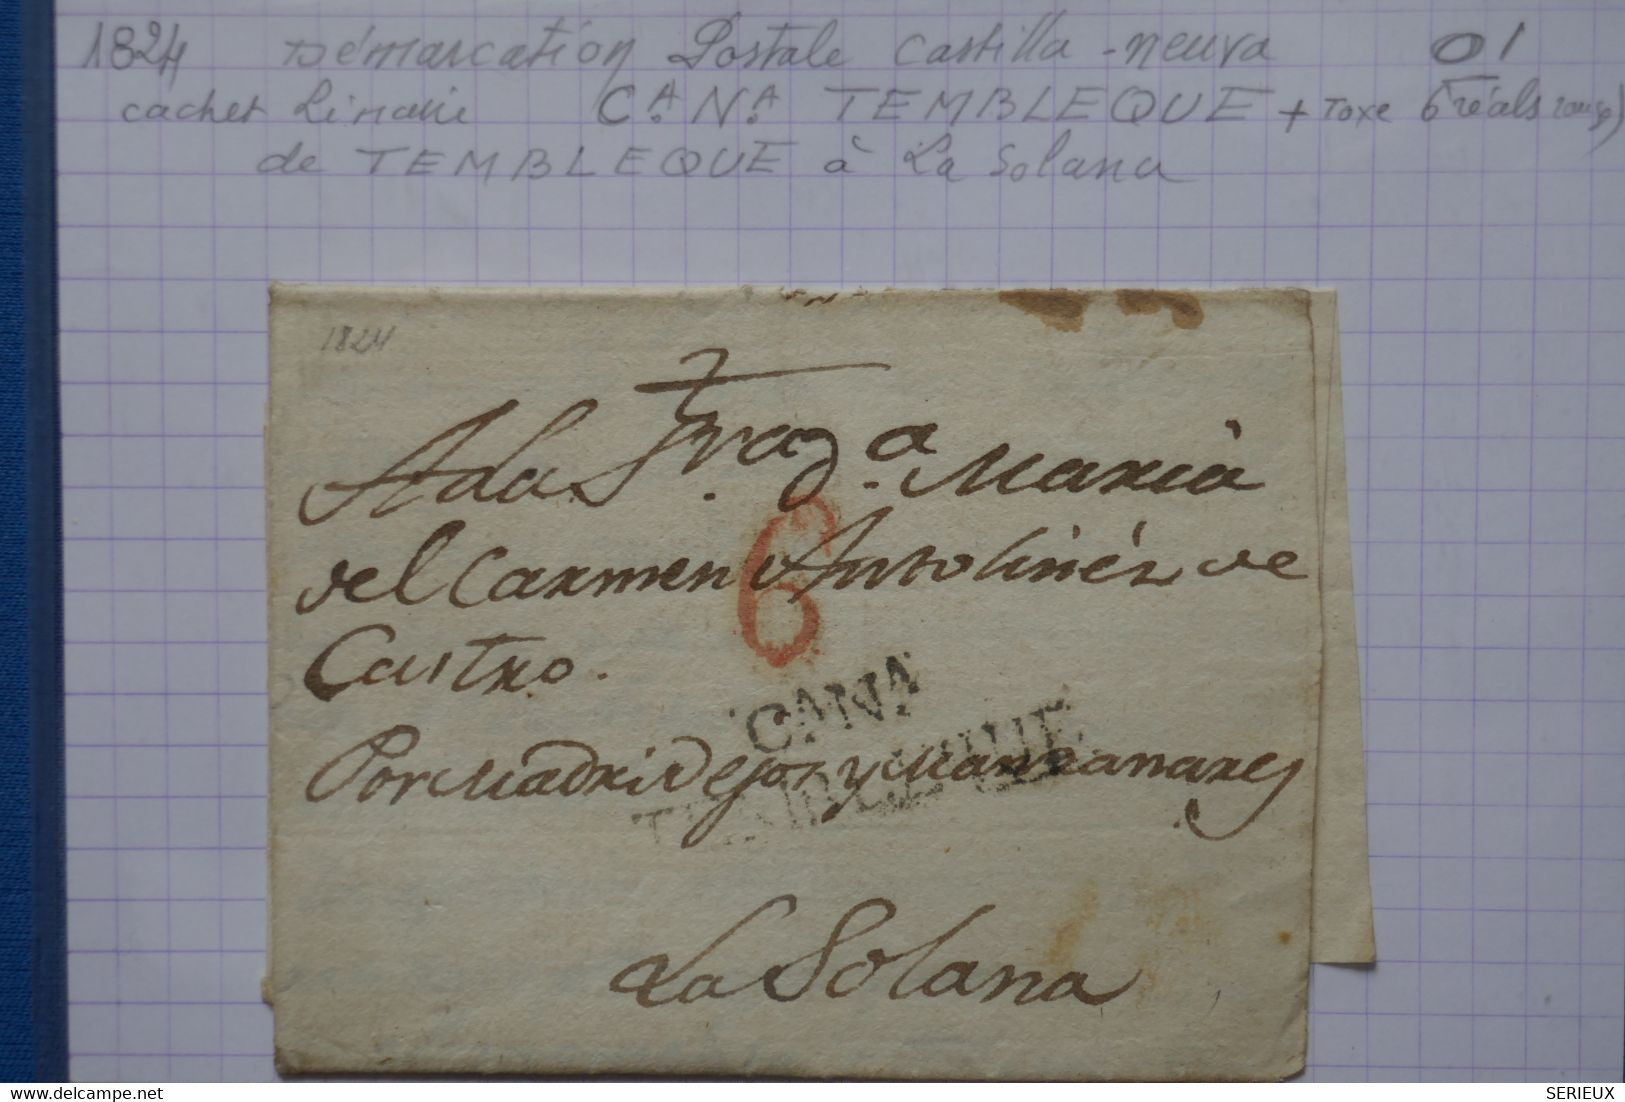 1824 Démarcation Postale Castilla-neuva 01
cachet Linaire C.A N.A TEMBLEQUE + Taxe 6 réals rouge)
de TEMBLEQUE à La Solana
1824
A la S.ra d.a Maria
6
del Carmen Antolinéz de
Castro.
CANA
Por Madridejos y Manzanares
TEMBLEQUE
La Solana
SERIEUX